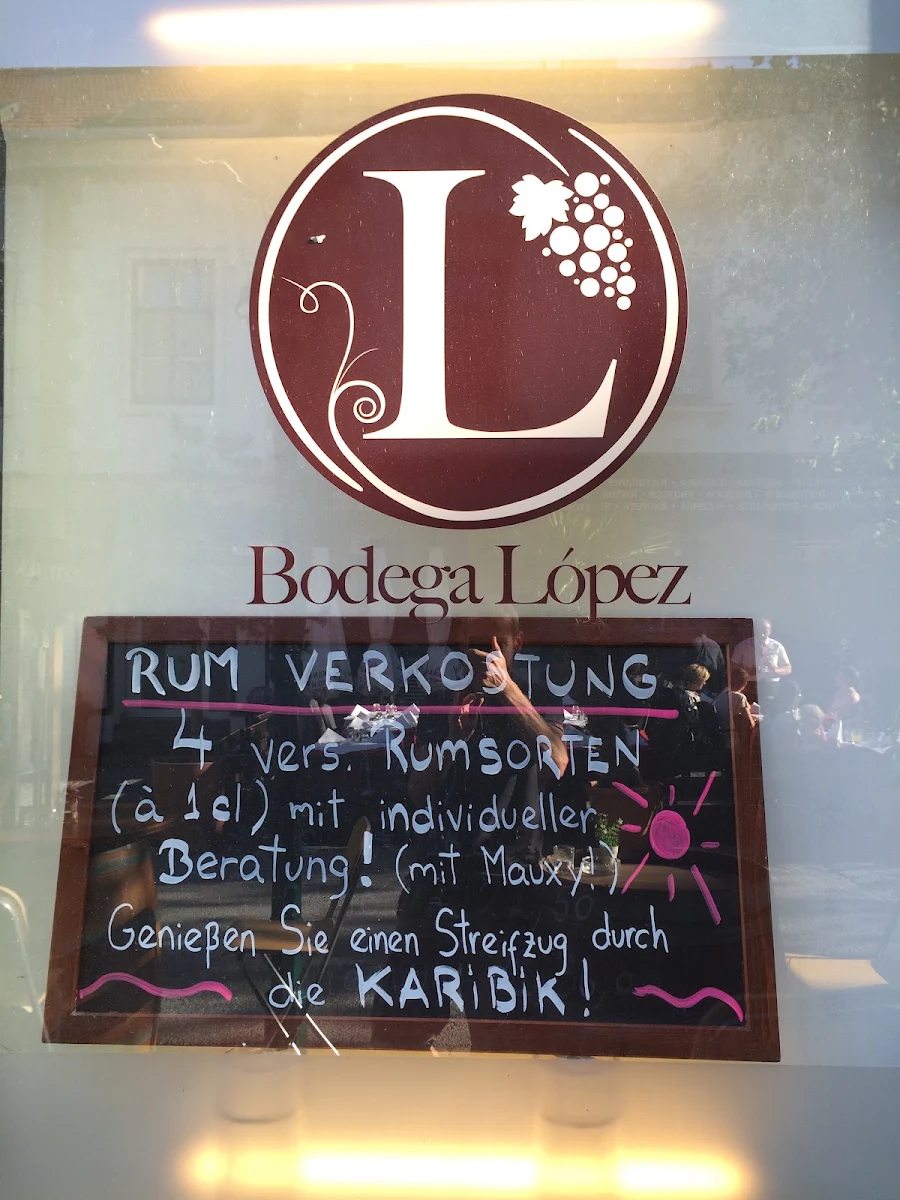 L
Bodega López
RUM VERKOSTUNG
4 vers. RUMSORTEN
(à 1cl) mit individueller
Beratung! (mit Mauxy!)
Genießen Sie einen Streifzug durch
die KARiBiK!